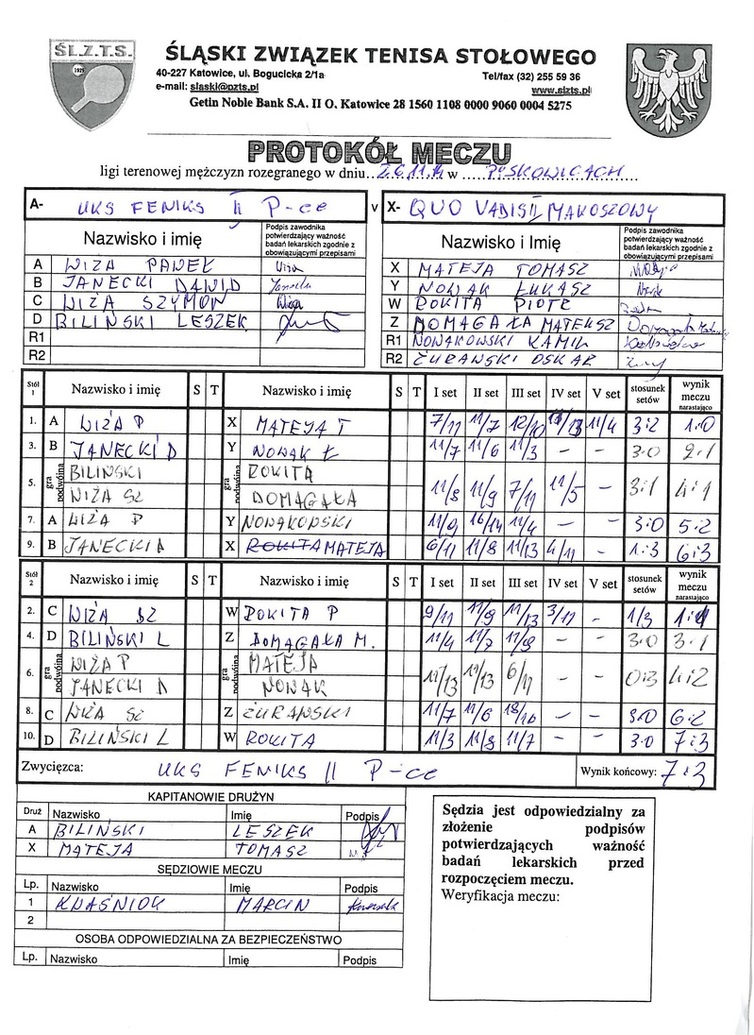 ŚL.Z.T.S.
1929
ŚLĄSKI ZWIĄZEK TENISA STOŁOWEGO
40-227 Katowice, ul. Bogucicka 2/1a Tel/fax (32) 255 59 36
e-mail: slaski@pzts.pl www.slzts.pl
Getin Noble Bank S.A. II O. Katowice 28 1560 1108 0000 9060 0004 5275
PROTOKÓŁ MECZU
ligi terenowej mężczyzn rozegranego w dniu 26.11.14 w PYSKOWICACH
A- UKS FENIKS II P-ce v X- QUO VADIS II MAKOSZOWY
Nazwisko i imię Podpis zawodnika potwierdzający ważność badań lekarskich zgodnie z obowiązującymi przepisami Nazwisko i Imię Podpis zawodnika potwierdzający ważność badań lekarskich zgodnie z obowiązującymi przepisami
A WIŻA PAWEŁ Wiża X MATEJA TOMASZ Mateja
B JANECKI DAWID Janecki Y NOWAK ŁUKASZ Nowak
C WIŻA SZYMON Wiża W ROKITA PIOTR
D BILIŃSKI LESZEK Z DOMAGAŁA MATEUSZ
R1 R1 NOWAKOWSKI KAMIL
R2 R2 ŻURAŃSKI OSKAR
Stół 1 Nazwisko i imię S T Nazwisko i imię S T I set II set III set IV set V set stosunek setów wynik meczu narastająco
1. A WIŻA P X MATEJA T 7/11 11/7 12/10 /13 11/4 3:2 1:0
3. B JANECKI D Y NOWAK Ł 11/7 11/6 11/3 – – 3:0 2:1
5. gra podwójna BILIŃSKI WIŻA SZ gra podwójna ROKITA DOMAGAŁA 11/8 11/9 7/11 11/5 – 3:1 4:1
7. A WIŻA P Y NOWAKOWSKI 11/9 16/14 11/4 – – 3:0 5:2
9. B JANECKI D X ROKITA MATEJA 6/11 11/8 11/13 4/11 – 1:3 6:3
Stół 2 Nazwisko i imię S T Nazwisko i imię S T I set II set III set IV set V set stosunek setów wynik meczu narastająco
2. C WIŻA SZ W ROKITA P 9/11 11/9 11/13 3/11 – 1/3 1:1
4. D BILIŃSKI L Z DOMAGAŁA M. 11/4 11/7 11/9 – – 3:0 3:1
6. gra podwójna WIŻA P JANECKI D gra podwójna MATEJA NOWAK 11/13 11/13 6/11 – – 0:3 4:2
8. C WIŻA SZ Z ŻURAŃSKI 11/7 11/6 18/16 – – 3:0 6:2
10. D BILIŃSKI L W ROKITA 11/3 11/8 11/7 – – 3:0 7:3
Zwycięzca: UKS FENIKS II P-ce Wynik końcowy: 7:3
KAPITANOWIE DRUŻYN
Druż Nazwisko Imię Podpis
A BILIŃSKI LESZEK
X MATEJA TOMASZ
SĘDZIOWIE MECZU
Lp. Nazwisko Imię Podpis
1 KWAŚNIOK MARCIN
2
OSOBA ODPOWIEDZIALNA ZA BEZPIECZEŃSTWO
Lp. Nazwisko Imię Podpis
Sędzia jest odpowiedzialny za
złożenie podpisów
potwierdzających ważność
badań lekarskich przed
rozpoczęciem meczu.
Weryfikacja meczu: